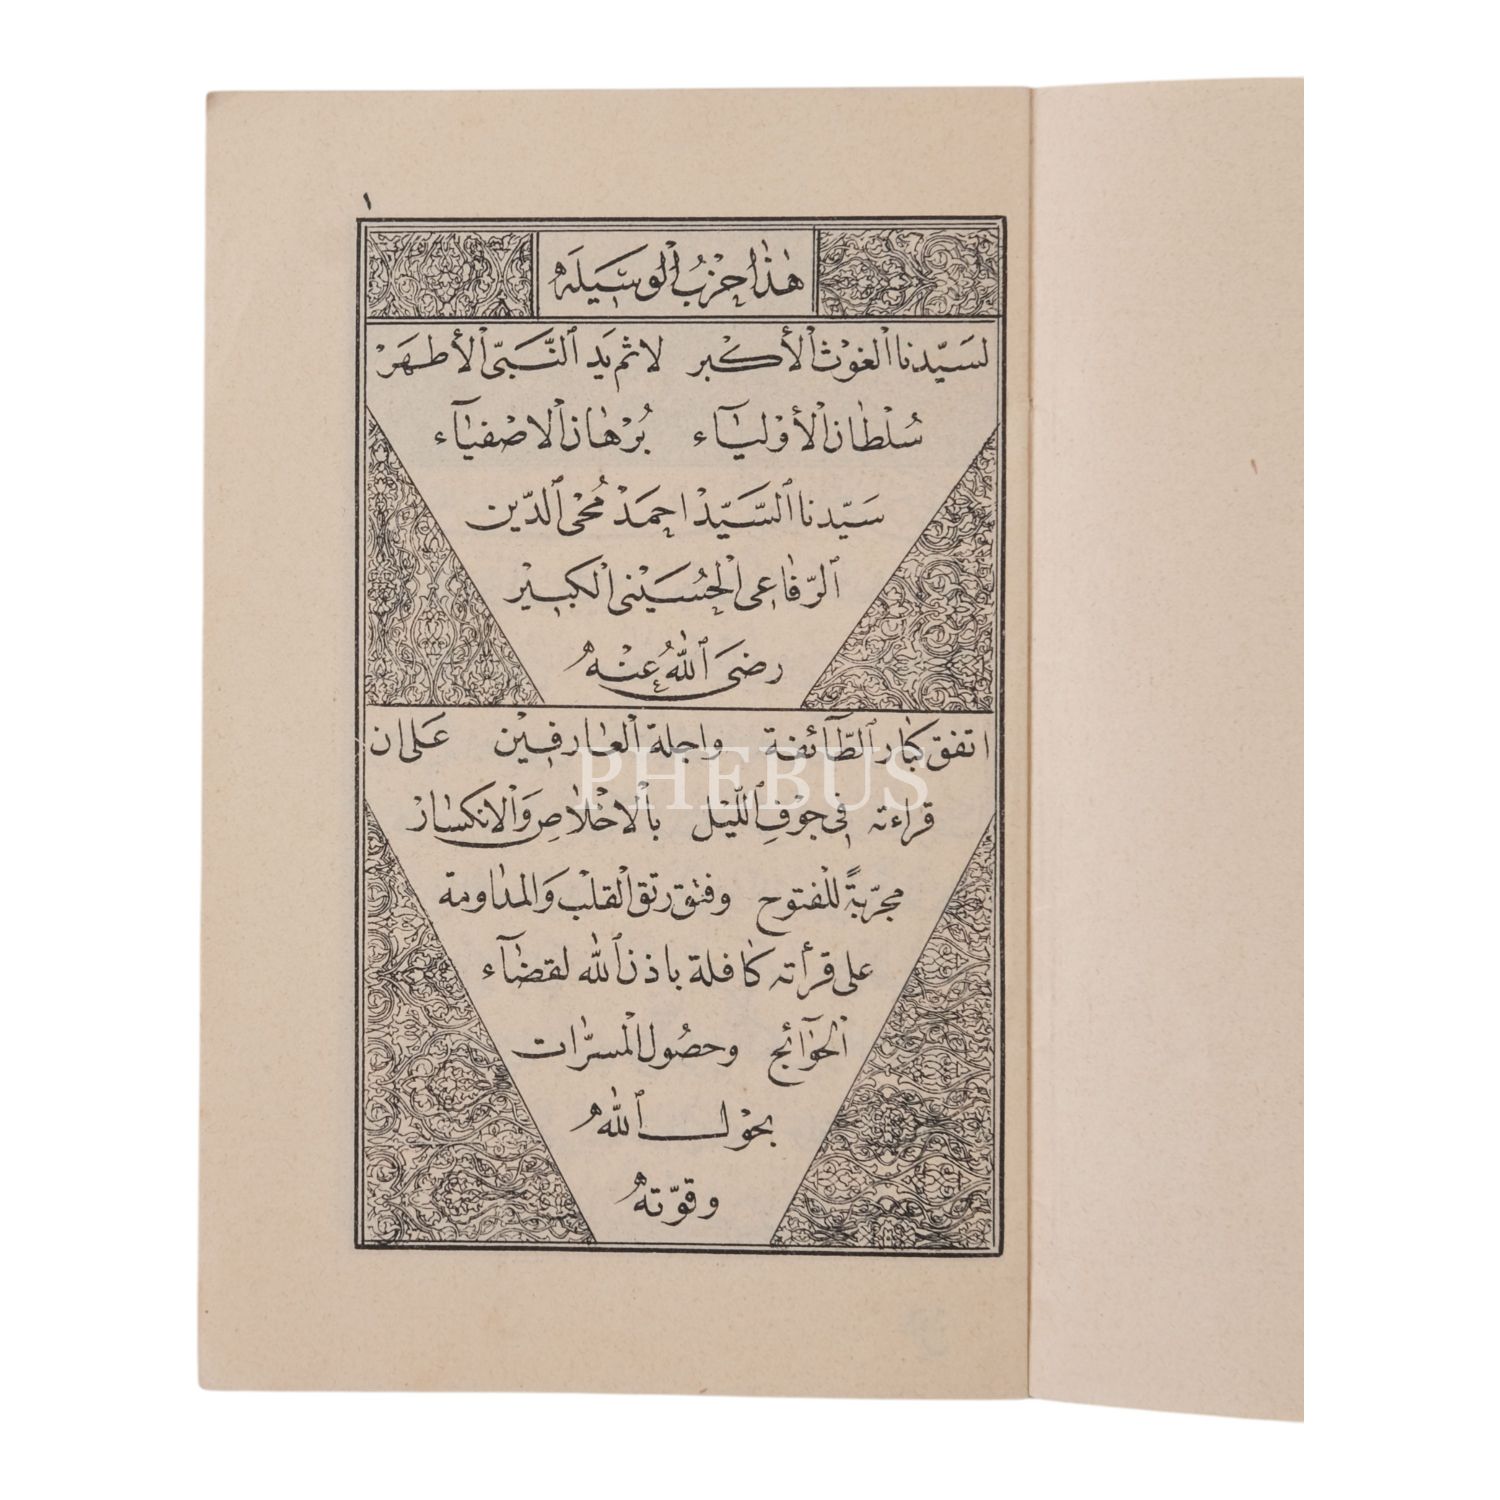 ١
هٰذَا حِزْبُ الْوَسِيلَه
لسَيّدنا الغوْث الْأكْبر لاثم يَد النَّبيّ الْأطهَرْ
سُلْطان الْأوْليَآء بُرْهَان الْاصْفيَآء
سَيّدنا السَّيّدْ احمَدْ مُحْيى الدّين
الرّفاعِى الْحُسَيْنى الْكبير
رضىَ اللهُ عنْهُ
اتفق كبار الطّآئفة واجلة الْعارفين عَلى ان
قراءته فى جوْفِ اللّيْل بالْاخْلاصِ وَالْانكسارْ
مجرّبَةً للْفتوح وفتْق رتق الْقلْب وَالمداومة
على قرأته كافلة باذن الله لقضَآء
الْحوَآئج وحصُول الْمسرّات
بحوْل اللهُ
وقوّتهُ
PHEBUS